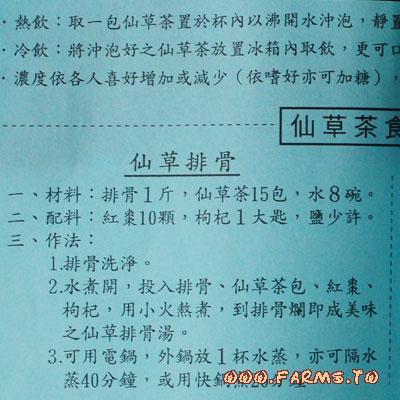 ．熱飲：取一包仙草茶置於杯內以沸開水沖泡，靜置
．冷飲：將沖泡好之仙草茶放置冰箱內取飲，更可口
．濃度依各人喜好增加或減少（依嗜好亦可加糖），
仙草茶食
仙草排骨
一、材料：排骨1斤，仙草茶15包，水8碗。
二、配料：紅棗10顆，枸杞1大匙，鹽少許。
三、作法：
1.排骨洗淨。
2.水煮開，投入排骨、仙草茶包、紅棗、
枸杞，用小火熬煮，到排骨爛即成美味
之仙草排骨湯。
3.可用電鍋，外鍋放1杯水蒸，亦可隔水
蒸40分鐘，或用快鍋蒸20分鐘
WWW.FARMS.TW